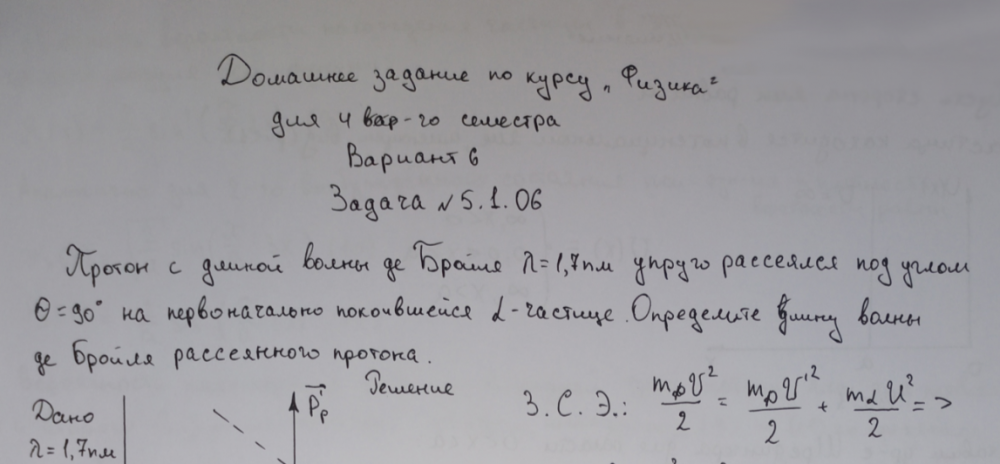 Домашнее задание по курсу "Физика"
для 4 вар-го семестра
Вариант 6
Задача №5.1.06
Протон с длиной волны де Бройля λ=1,7пм упруго рассеялся под углом
θ=90° на первоначально покоившейся α-частице. Определите длину волны
де Бройля рассеянного протона.
Решение
Дано
λ=1,7пм
P⃗'ₚ
З.С.Э.: mₚv²/2 = mₚv'²/2 + mαu²/2 =>